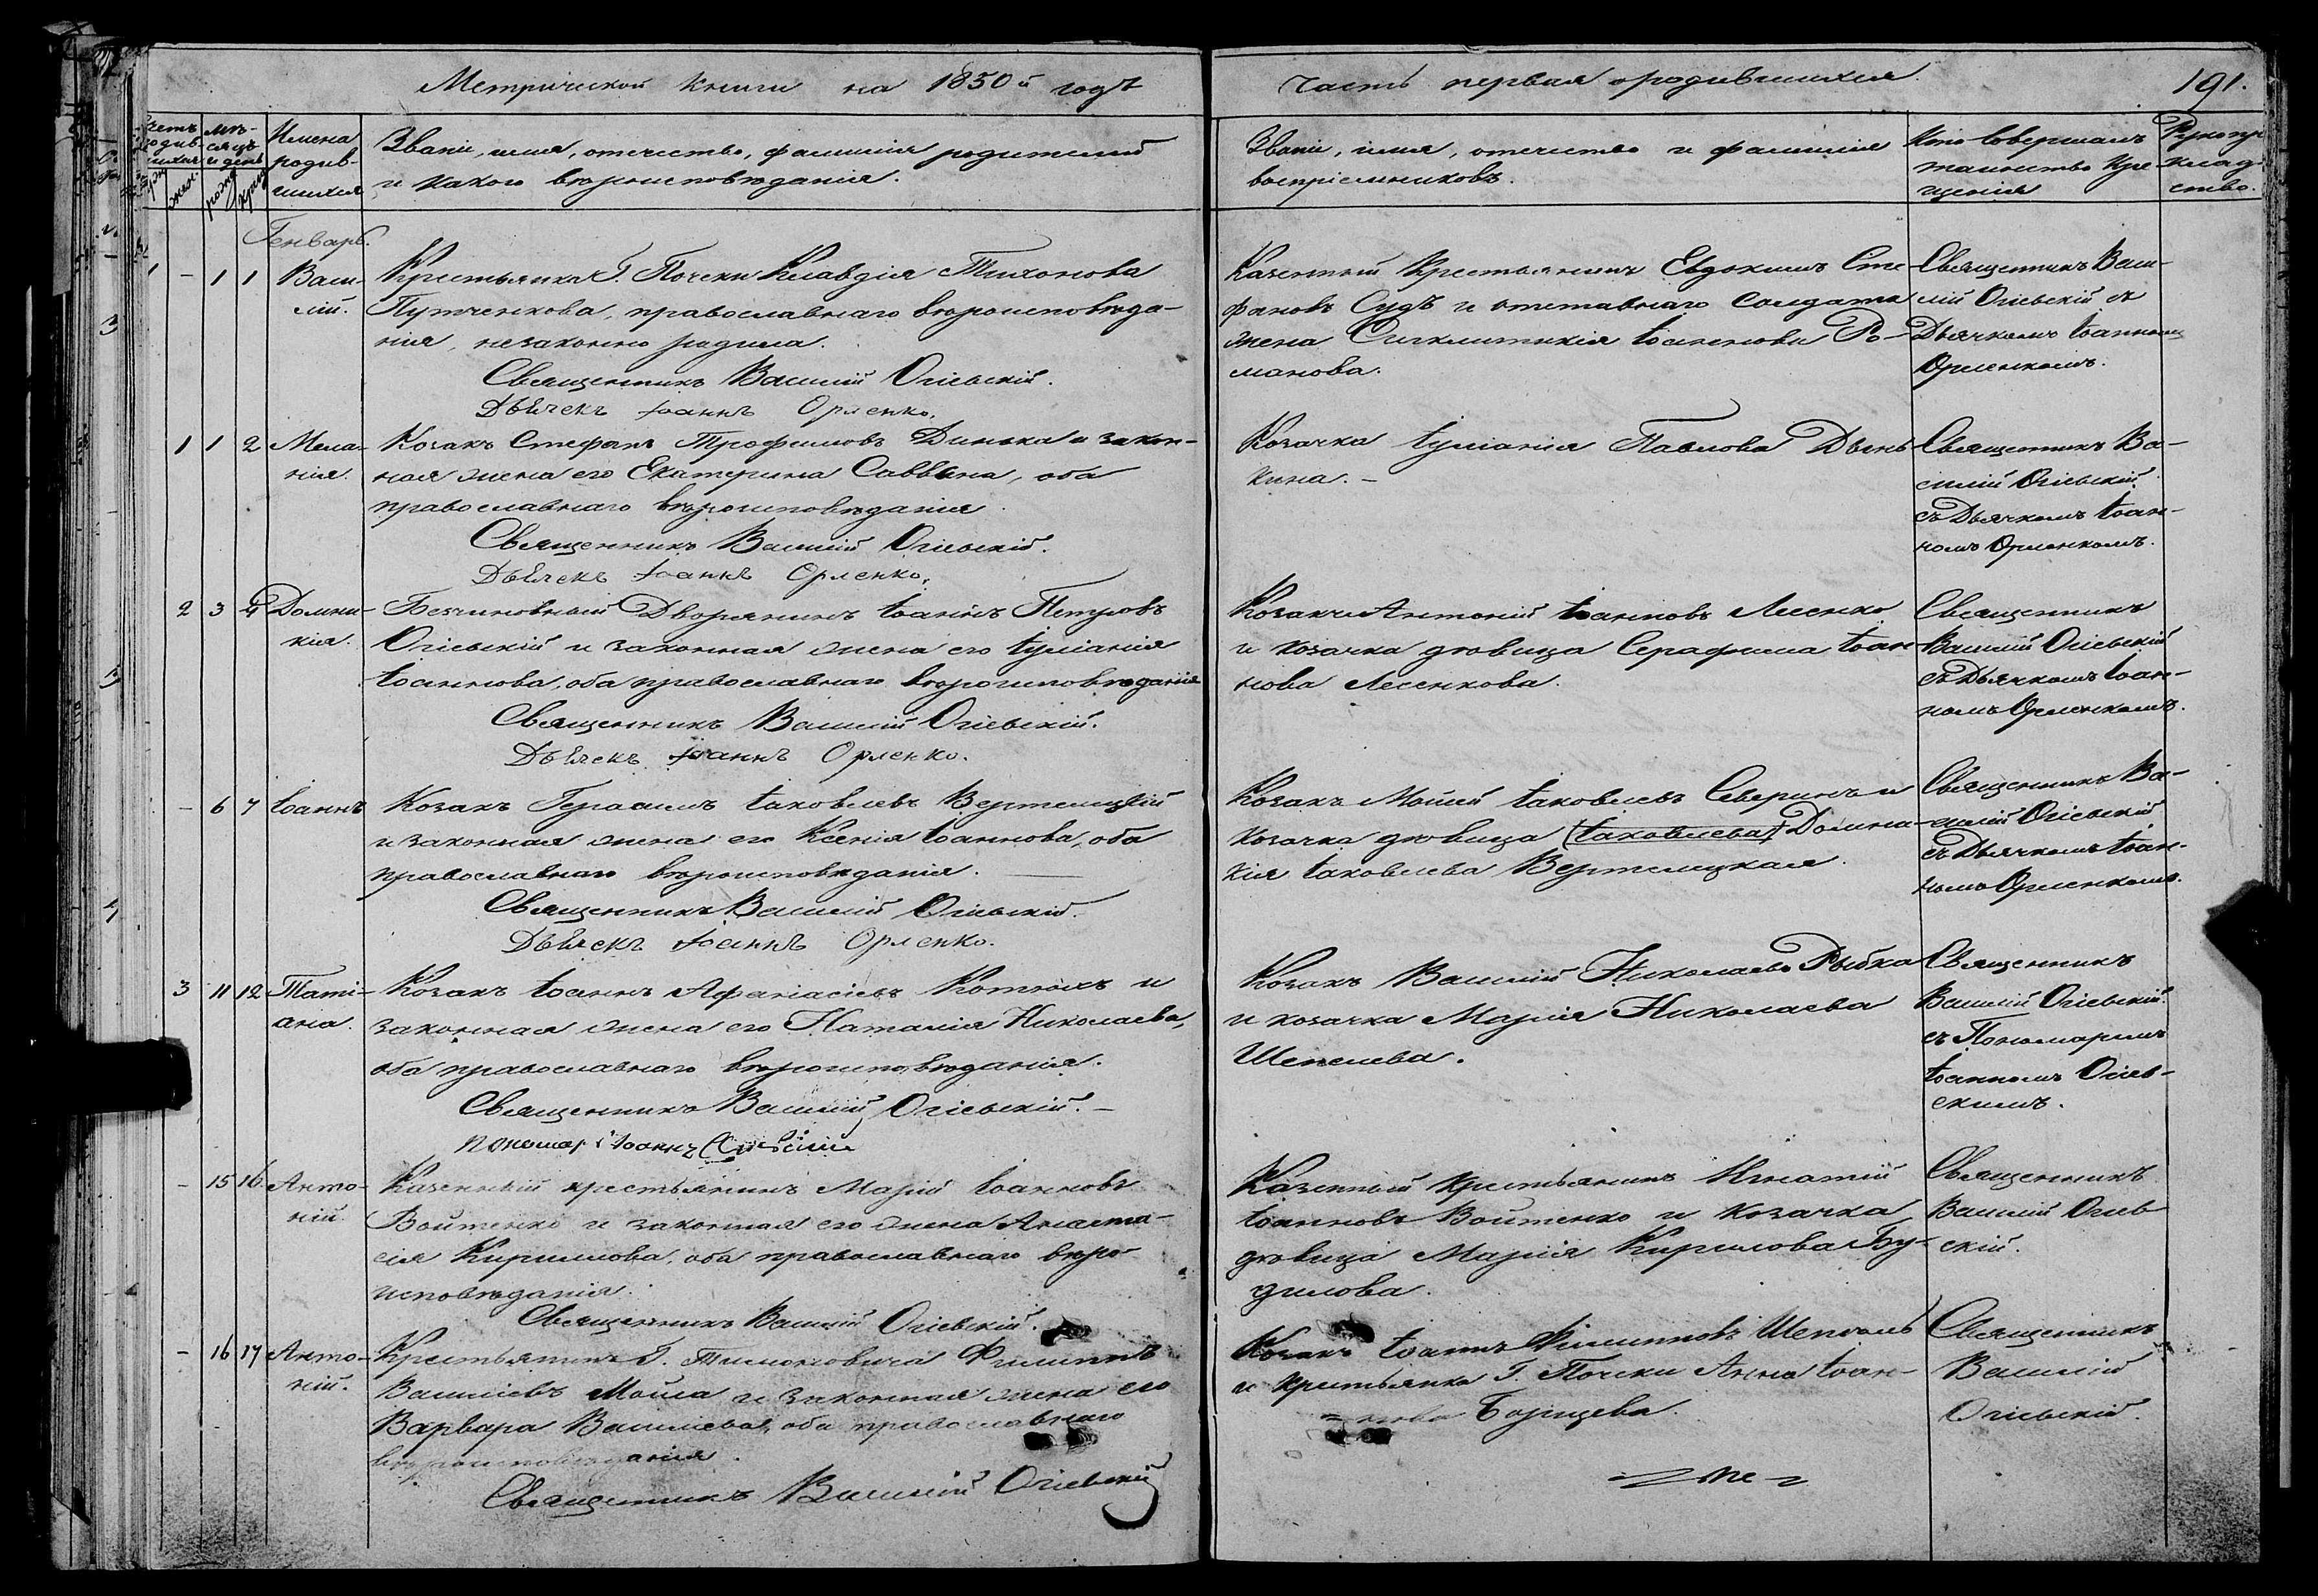 Метрической книги на 1850й годъ
Часть первая о родившихся
191.
Счетъ родившихся
муж.
жен.
Мѣсяцъ и день
рожд.
крещ.
Имена родив-
шихся
Званіе, имя, отчество, фамилія родителей
и какого вѣроисповѣданія.
Званіе, имя, отчество и фамилія
воспріемниковъ.
Кто совершалъ
таинство кре-
щенія
Рукопри
клад
ство.
Генварь.
1 - 1 1 Васи-
лій.
Крестьянка Г. Почеки Клавдія Тихонова
Путченкова, православнаго вѣроисповѣда-
нія, незаконно родила.
Священникъ Василій Огіевскій.
Дьячекъ Іоаннъ Орленко.
Казенный крестьянинъ Евдокимъ Сте-
фановъ Судъ и отставнаго солдата
жена Сигклитикія Іоаннова Ро-
манова.
Священникъ Васи-
лій Огіевскій съ
Дьячкомъ Іоанномъ
Орленкомъ.
1 1 2 Мела-
нія.
Козакъ Стефанъ Трофимовъ Динька и закон-
ная жена его Екатерина Саввина, оба
православнаго вѣроисповѣданія
Священникъ Василій Огіевскій.
Дьячекъ Іоаннъ Орленко.
Козачка Іуліанія Павлова Дынь-
кина. -
Священникъ Ва-
силій Огіевскій
съ Дьячкомъ Іоан-
номъ Орленкомъ.
2 3 4 Домни-
кія.
Безчиновный Дворянинъ Іоаннъ Петровъ
Огіевскій и законная жена его Іуліанія
Іоаннова, оба православнаго вѣроисповѣданія
Священникъ Василій Огіевскій.
Дьячекъ Іоаннъ Орленко.
Козакъ Антоній Іоанновъ Лесенко
и козачка дѣвица Серафима Іоан
нова Лесенкова.
Священникъ
Василій Огіевскій
съ Дьячкомъ Іоан-
номъ Орленкомъ.
- 6 7 Іоаннъ
Козакъ Герасимъ Іаковлевъ Вертелицкій
и законная жена его Ксенія Іоаннова, оба
православнаго вѣроисповѣданія.
Священникъ Василій Огіевскій.
Дьячекъ Іоаннъ Орленко.
Козакъ Мойсей Іаковлевъ Северинъ и
козачка дѣвица (Іаковлева) Домни-
кія Іаковлева Вертелицкая.
Священникъ Ва-
силій Огіевскій
съ Дьячкомъ Іоан-
номъ Орленкомъ.
3 11 12 Таті-
ана.
Козакъ Іоаннъ Афанасіевъ Котлякъ и
законная жена его Наталія Николаева,
оба православнаго вѣроисповѣданія.
Священникъ Василій Огіевскій. -
Пономарь Іоаннъ Огіевскій
Козакъ Василій Николаевъ Рыбка
и козачка Марія Николаева
Шепелева.
Священникъ
Василій Огіевскій
съ Пономаремъ
Іоанномъ Огіев-
скимъ.
- 15 16 Анто-
ній.
Казенный крестьянинъ Марій Іоанновъ
Войтенко и законная его жена Анаста-
сія Кириллова, оба православнаго вѣро-
исповѣданія.
Священникъ Василій Огіевскій.
Казенный крестьянинъ Игнатій
Іоанновъ Войтенко и козачка
дѣвица Марія Кирилова Бу-
дилова.
Священникъ
Василій Огіев
скій.
- 16 17 Анто-
ній.
Крестьянинъ Г. Тимоновича Филиппъ
Василіевъ Мойса и законная жена его
Варвара Василіева, оба православнаго
вѣроисповѣданія.
Священникъ Василій Огіевскій
Козакъ Іоаннъ Филипповъ Шепель
и крестьянка Г. Почеки Анна Іоан-
нова Борщева.
Священникъ
Василій
Огіевскій.